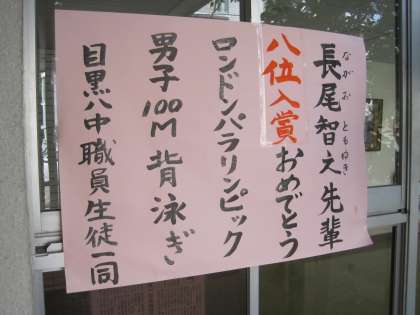 長尾智之先輩
ながお ともゆき
八位入賞おめでとう
ロンドンパラリンピック
男子100M背泳ぎ
目黒八中職員生徒一同